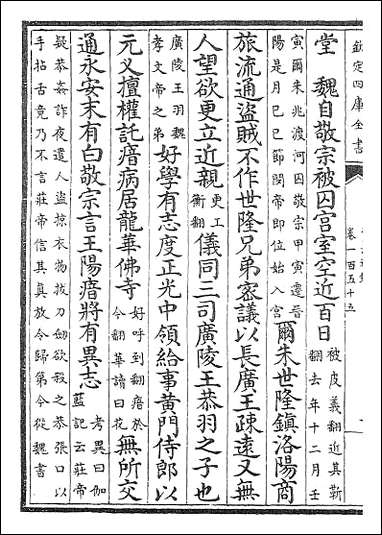 欽定四庫全書
卷一百五十五
堂　魏自敬宗被囚宮室空近百日被皮義翻近其靳翻去年十二月壬
寅爾朱兆渡河囚敬宗甲寅遷晉陽是月己巳節閔帝即位始入宮爾朱世隆鎮洛陽商
旅流通盜賊不作世隆兄弟密議以長廣王疎遠又無
人望欲更立近親更工衡翻儀同三司廣陵王恭羽之子也
廣陵王羽魏孝文帝之弟好學有志度正光中領給事黃門侍郎以
元乂擅權託瘖病居龍華佛寺好呼到翻瘖於今翻華讀曰花無所交
通永安末有白敬宗言王陽瘖將有異志考異曰伽藍記云莊帝
疑恭姦詐夜遣人盜掠衣物拔刀劒欲殺之恭張口以手拈舌竟乃不言莊帝信其真放令歸第今從魏書